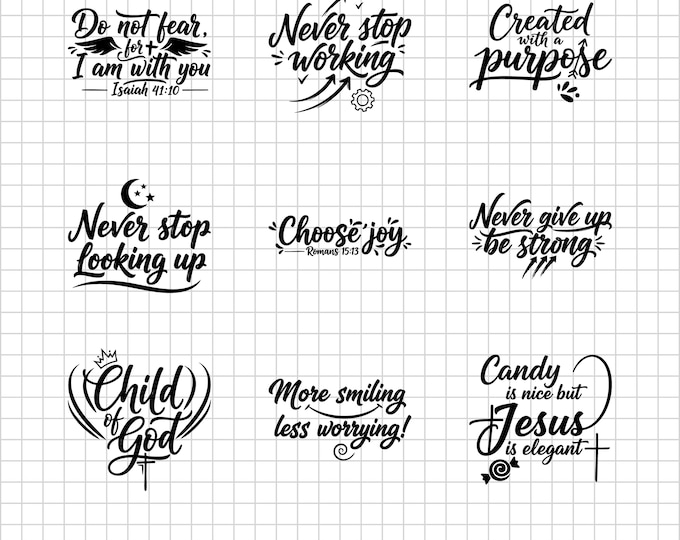 Do not fear,
for
I am with you
Isaiah 41:10
Never stop
working
Created
with a
purpose
Never stop
looking up
Choose joy
Romans 15:13
Never give up
be strong
Child
of
God
More smiling
less worrying!
Candy
is nice but
Jesus
is elegant